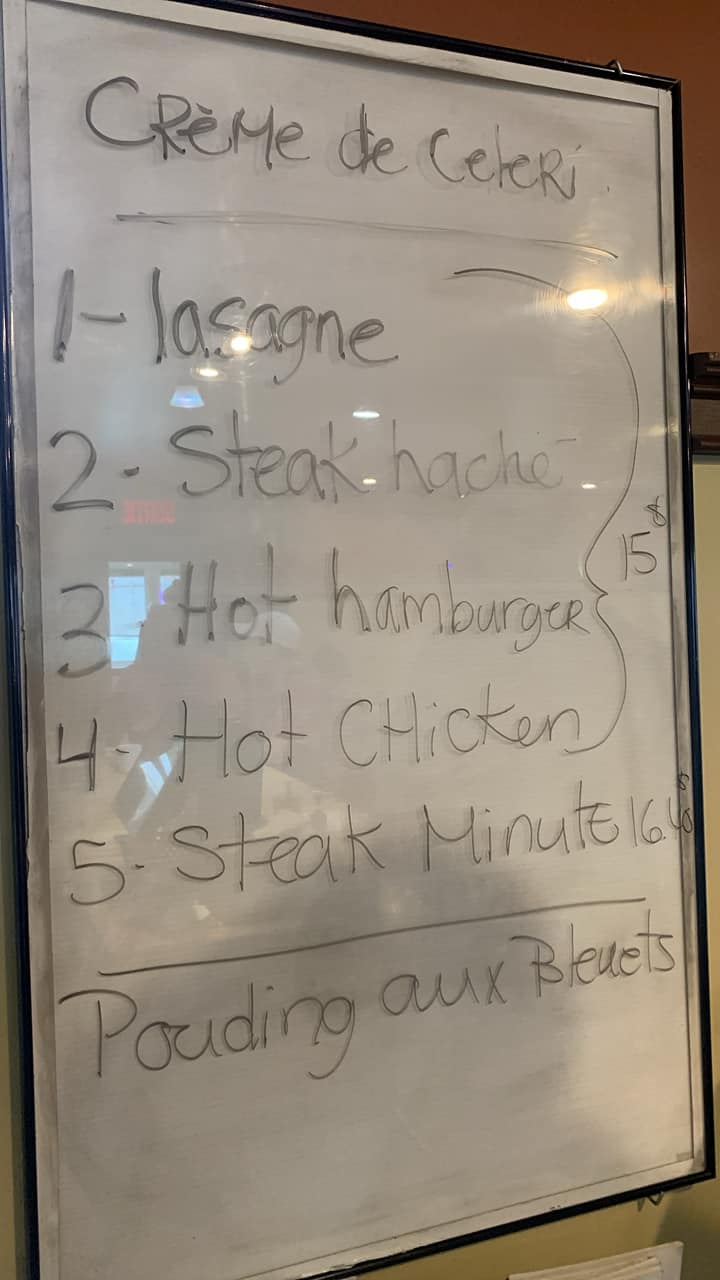 CRèMe de CeleRi
1- lasagne
2- Steak haché
3- Hot hamburgeR
4- Hot CHicken
15$
5- Steak MinutE
Pouding aux Bleuets